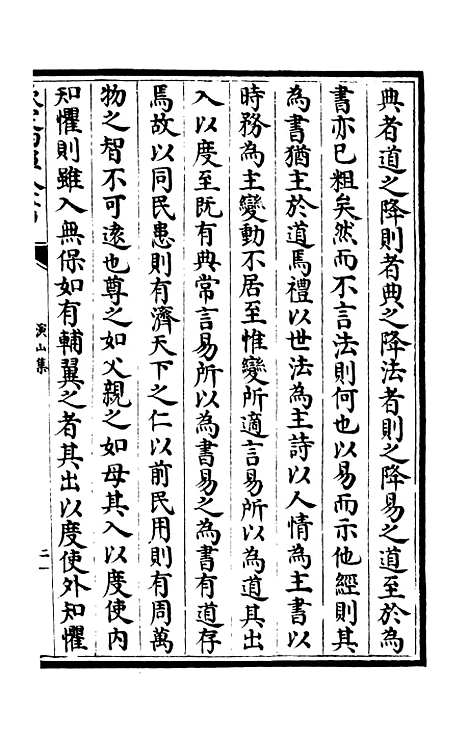 典者道之降則者典之降法者則之降易之道至於為
書亦已粗矣然而不言法則何也以易而示他經則其
為書猶主於道焉禮以世法為主詩以人情為主書以
時務為主變動不居至惟變所適言易所以為道其出
入以度至既有典常言易所以為書易之為書有道存
焉故以同民患則有濟天下之仁以前民用則有周萬
物之智不可逺也尊之如父親之如母其入以度使内
知懼則雖入無保如有輔翼之者其出以度使外知懼
演山集
二